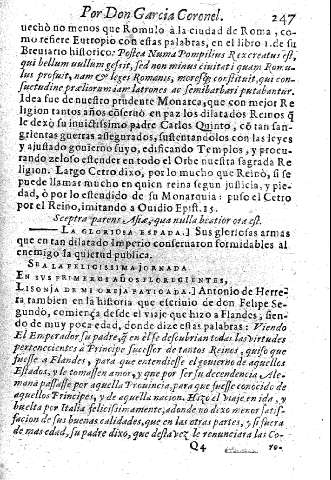 Por Don Garcia Coronel. 247
uechò no menos que Romulo à la ciudad de Roma, co-
mo refiere Eutropio con estas palabras, en el libro 1. de su
Breuiario historico: Postea Numa Pompilius Rex creatus est,
qui bellum nullum gessit, sed non minus ciuitati quam Romu-
lus profuit, nam & leges Romanis, moresq; constituit, qui con-
suetudine præliorum iam latrones ac semibarbari putabantur.
Idea fue de nuestro prudente Monarca, que con mejor Re
ligion tantos años cõseruò en paz los dilatados Reinos q̃
le dexò su inuictissimo padre Carlos Quinto, cõ tan san-
grientas guerras assegurados, sustentandolos con las leyes
y ajustado gouierno suyo, edificando Templos, y procu-
rando zeloso estender en todo el Orbe nuestra sagrada Re
ligion. Largo Cetro dixo, por lo mucho que Reinò, si se
puede llamar mucho en quien reina segun justicia, y pie-
dad, ò por lo estendido de su Monarquia: puso el Cetro
por el Reino, imitando a Ouidio Epist. 15.
Sceptra parens Asiæ, qua nulla beatior ora est.
LA GLORIOSA ESPADA.] Sus gloriosas armas
que en tan dilatado Imperio conseruaron formidables al
enemigo la quietud publica.
SEA LA FELICISSIMA JORNADA
EN SVS PRIMEROS AÑOS FLORECIENTES,
LISONJA DE MI OREJA FATIGADA.] Antonio de Herre-
ra tambien en la historia que escriuio de don Felipe Se-
gundò, comiença desde el viaje que hizo a Flandes, sien-
do de muy poca edad, donde dize estas palabras: Viendo
El Emperador su padre, q̃ en èl se descubrian todas las virtudes
pertenecientes à Principe sucesser de tantos Reinos, quiso que
fuesse a Flandes, para que entendiesse el gouierno de aquellos
Estados, y le tomassen amor, y que por ser su decendencia Ale-
mana passasse por aquella Prouincia, para que fuesse conocido de
aquellos Principes, y de aquella nacion. Hizo el viaje en ida, y
buelta por Italia felicissimamente, adonde no dixo menor satis-
facion de sus buenas calidades, que en las otras partes, y si fuera
de mas edad, su padre dixo, que desta vez le renunciara las Co-
Q4 ro-